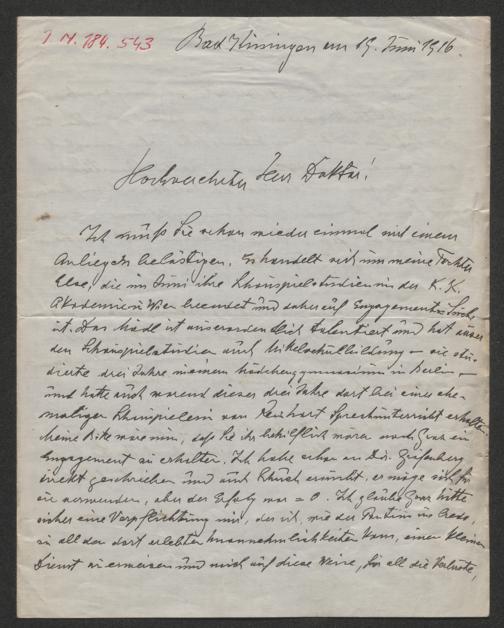 I. N. 184.543
Bad Kissingen am 19. Juni 1916.
Hochverehrter Herr Doktor!
Ich muß Sie schon wieder einmal mit einem
Anliegen belästigen. Es handelt sich um meine Tochter
Else, die im Juni ihre Schauspielstudien in der K. K.
Akademie in Wien beendet und daher auf Engagements-Suche
ist. Das Mädl ist außerordentlich talentiert und hat außer
den Schauspielstudien auch Mittelschulbildung – sie stu-
dierte drei Jahre in einem Mädchengymnasium in Berlin –
und hatte auch während dieser drei Jahre dort bei einer ehe-
maligen Schauspielerin von Sprechunterricht erhalten.
Meine Bitte wäre nun, daß Sie ihr behilflich wären auch ein
Engagement zu erhalten. Ich habe schon an Dir.
geschrieben und auch ersucht, er möge sich für
sie verwenden, aber der Erfolg war = 0. Ich glaube hätte
sicher eine Verpflichtung mir, der ich, wie der Pontius ins Credo,
zu all den dort erlebten Unannehmlichkeiten kam, einen kleinen
Dienst zu erweisen und mich auf diese Weise, für all die Verluste,